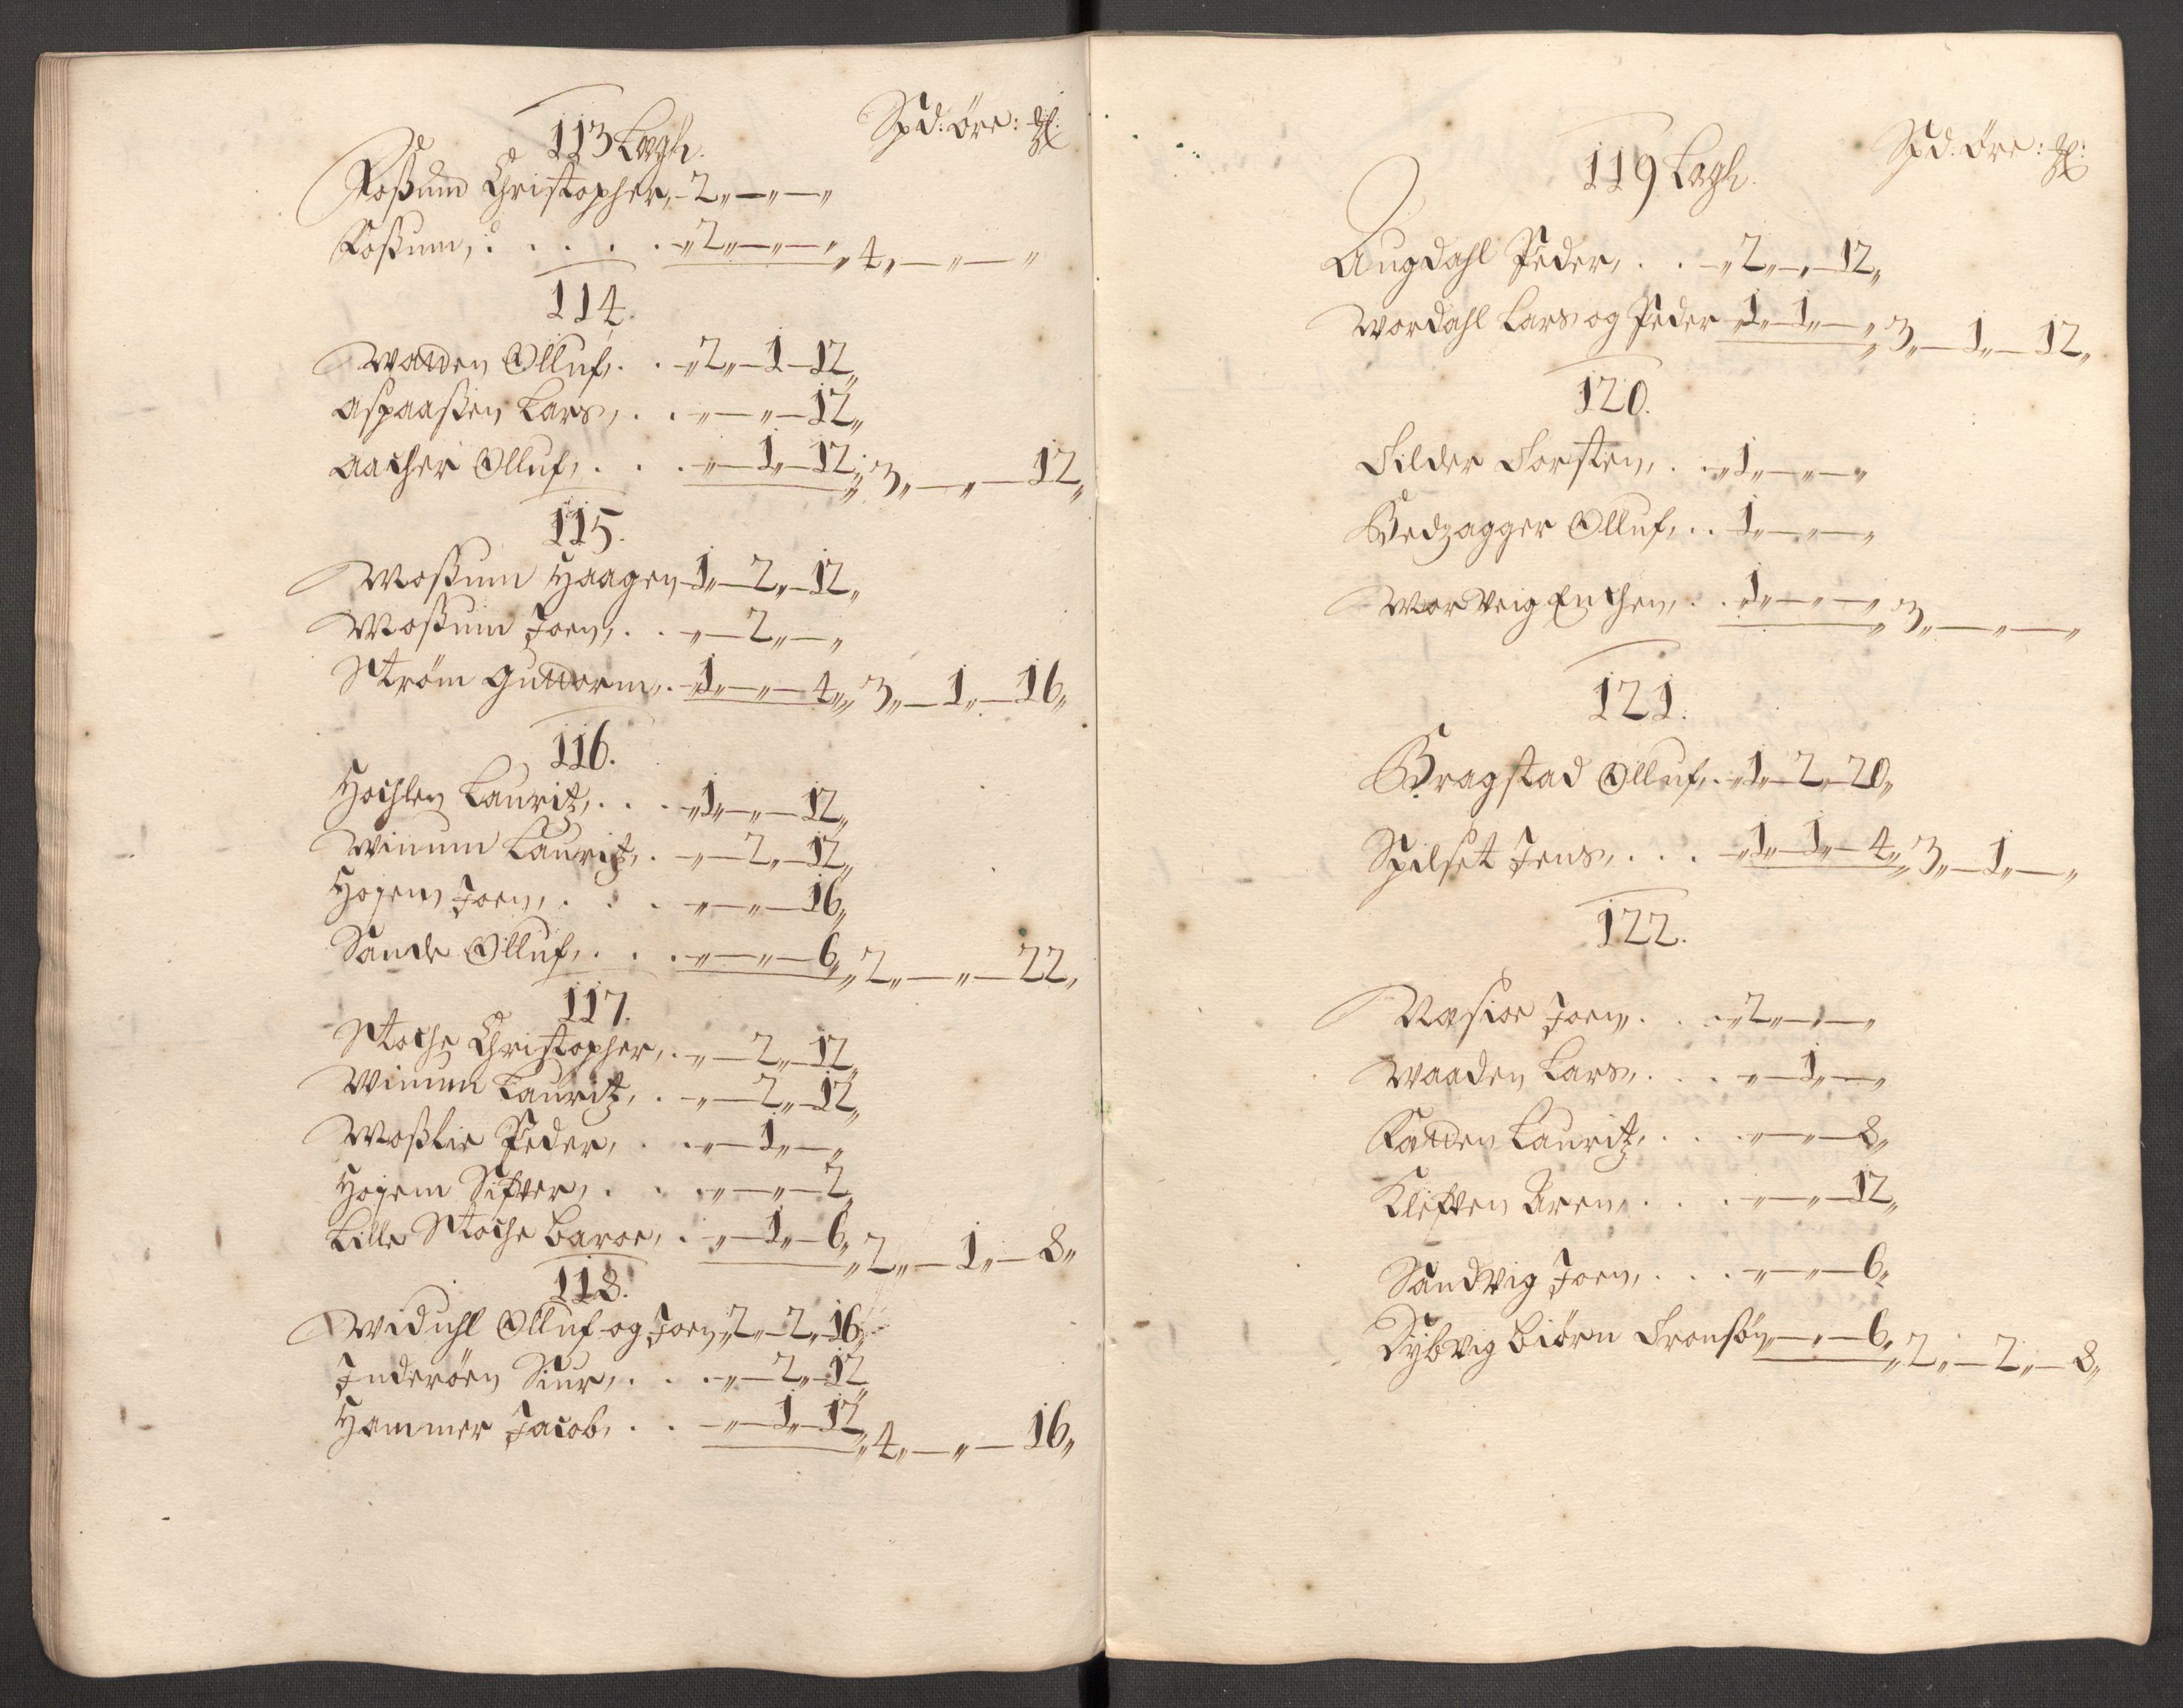 113 Lagh. Spd: öre: ꝝ:
Foßum Christopher, - 2 „ — „ — „
Foßum, : . . . . „ 2 „ — „ — „ „ 4 „ — „ — „
114.
Watden Olluf, . . „ 2 „ — 1 — 12 „
Aspaaßen Lars, . . „ — „ — 12 „
Aacher Olluf, . . . „ — 1 „ — 12 „ „ 3 „ — „ — 12 „
115.
Moßum Haagen 1 „ — 2 „ — 12 „
Moßum Joen, . . „ — 2 „ — „
Ström Guttorm, . „ 1 „ — „ — 4 „ „ 3 „ — 1 „ — 16 „
116.
Hochlen Lauritz, . . . „ 1 „ — „ — 12 „
Winum Lauritz, . „ — 2 „ — 12 „
Hojem Joen, . . . „ — „ — 16 „
Sande Olluf, . . . „ — „ — 6 „ „ 2 „ — „ — 22 „
117.
Stoche Christopher, . „ — 2 „ — 12 „
Winum Lauritz, . „ — 2 „ — 12 „
Moßlie Peder, . . „ — 1 „ — „
Hojem Sifver, . . . „ — „ — 2 „
Lille Stoche Baroe, . „ — 1 „ — 6 „ „ 2 „ — 1 „ — 8 „
118.
Widuhl Olluf og Joen „ 2 „ — 2 „ 16 „
Inderöen Siur, . . . „ — 2 „ — 12 „
Hammer Jacob, . . „ — 1 „ — 12 „ „ 4 „ — „ — 16 „
119 Lagh. Spd: öre: ꝝ:
Augdahl Peder, . . „ 2 „ — „ — 12 „
Wordahl Lars og Peder „ 1 „ — 1 „ — „ „ 3 „ — 1 „ — 12 „
120.
Silder Torsten, . „ 1 „ — „ — „
Bedzagger Olluf, . . 1 „ — „ — „
Worveig Enchen, . . „ 1 „ — „ — „ „ 3 „ — „ — „
121.
Bragstad Olluf, . „ 1 „ — 2 „ — 20 „
Spilset Jens, . . . „ 1 „ — 1 „ — 4 „ „ 3 „ — 1 „ — „
122.
Nasioe Joen, . . „ 2 „ — „ — „
Waaden Lars, . . . „ — 1 „ — „
Fatden Lauritz, . . . „ — „ — 8 „
Kleften Aren, . . . „ — „ — 12 „
Sandvig Joen, . . . „ — „ — 6 „
Dybvig Biörn Tronsön „ — „ — 6 „ „ 2 „ — 2 „ — 8 „